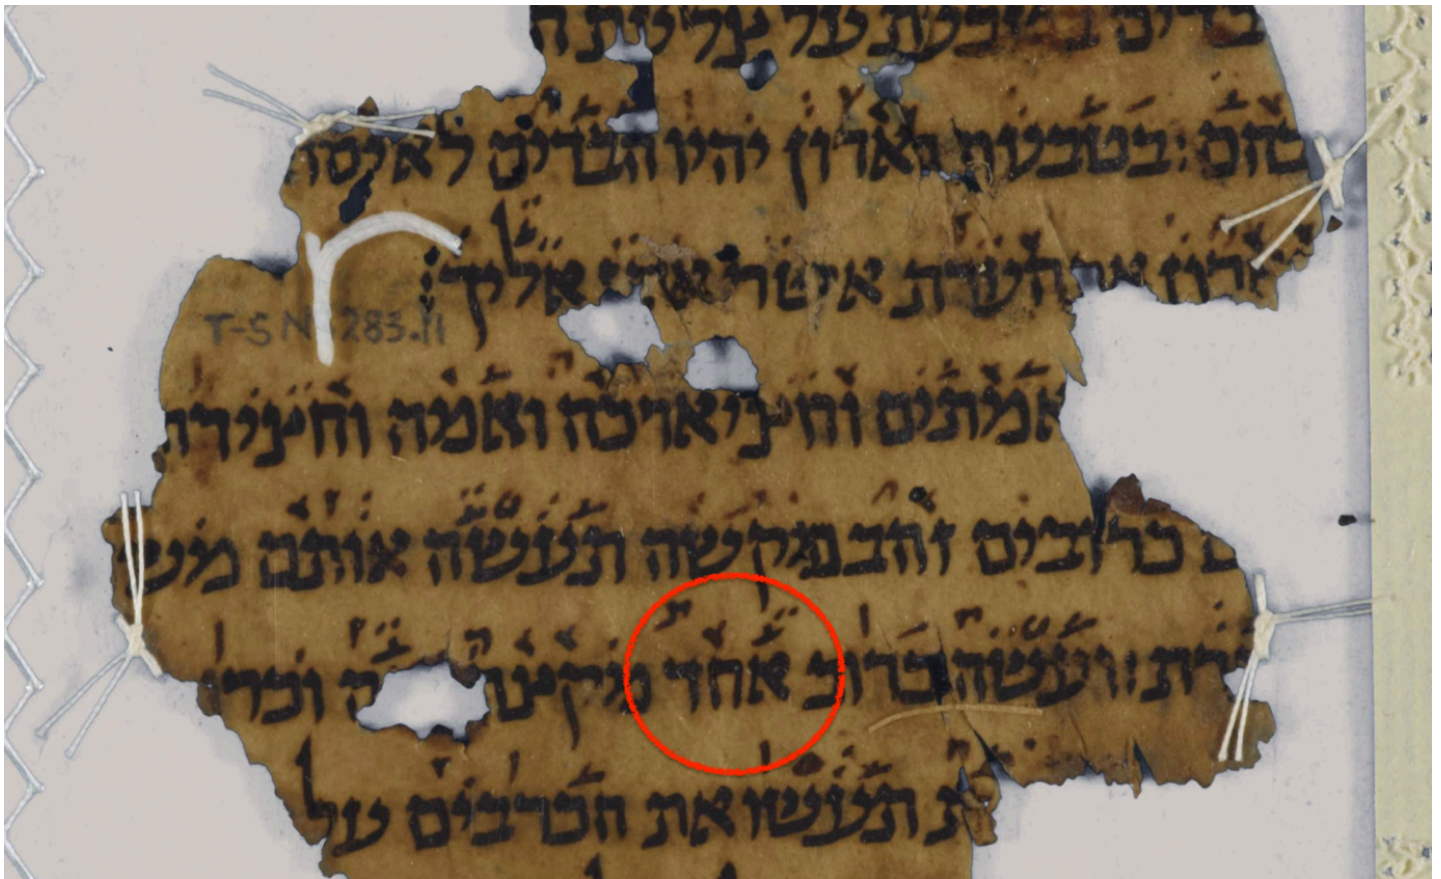 בדים בטבעת על צלעת ה
בהם: בטבעת הארון יהיו הבדים לא יסר
ארון את העדת אשר אתן אליך:
T-S NS 283.11
אמתים וחצי ארכה ואמה וחצי רח
ם כרובים זהב מקשה תעשה אותם מש
רת: ועשה כרוב אחד מקצה ה וכרו
ת תעשו את הכרבים על